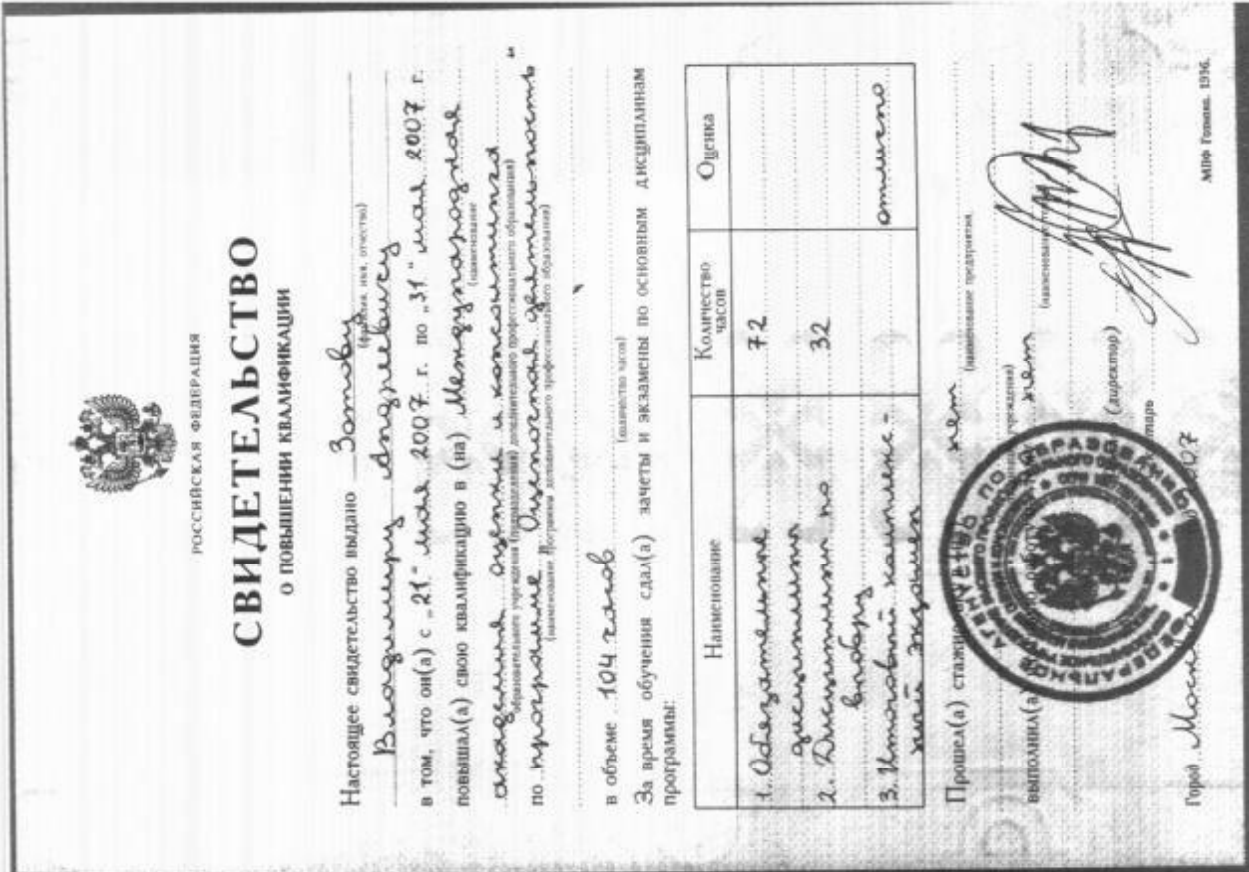 РОССИЙСКАЯ ФЕДЕРАЦИЯ
СВИДЕТЕЛЬСТВО
О ПОВЫШЕНИИ КВАЛИФИКАЦИИ
Настоящее свидетельство выдано Зотову
(фамилия, имя, отчество)
Владимиру Андреевичу
в том, что он(а) с „21" мая 2007 г. по „31" мая 2007 г.
повышал(а) свою квалификацию в (на) Международная
(наименование
академия оценки и консалтинга
образовательного учреждения (подразделения) дополнительного профессионального образования)
по программе „Оценочная деятельность"
(наименование программы дополнительного профессионального образования)
в объеме 104 часов
(количество часов)
За время обучения сдал(а) зачеты и экзамены по основным дисциплинам
программы:
Наименование Количество часов Оценка
1. Обязательные 72
дисциплины
2. Дисциплины по 32
выбору
3. Итоговый комплекс- отлично
ный экзамен
Прошел(а) нет
(наименование предприятия,
учреждения)
выполнил(а) нет
(наименование
(директор)
Город Москва 2007
МПФ Гознака. 1996.
ФЕДЕРАЛЬНОЕ АГЕНТСТВО ПО ОБРАЗОВАНИЮ